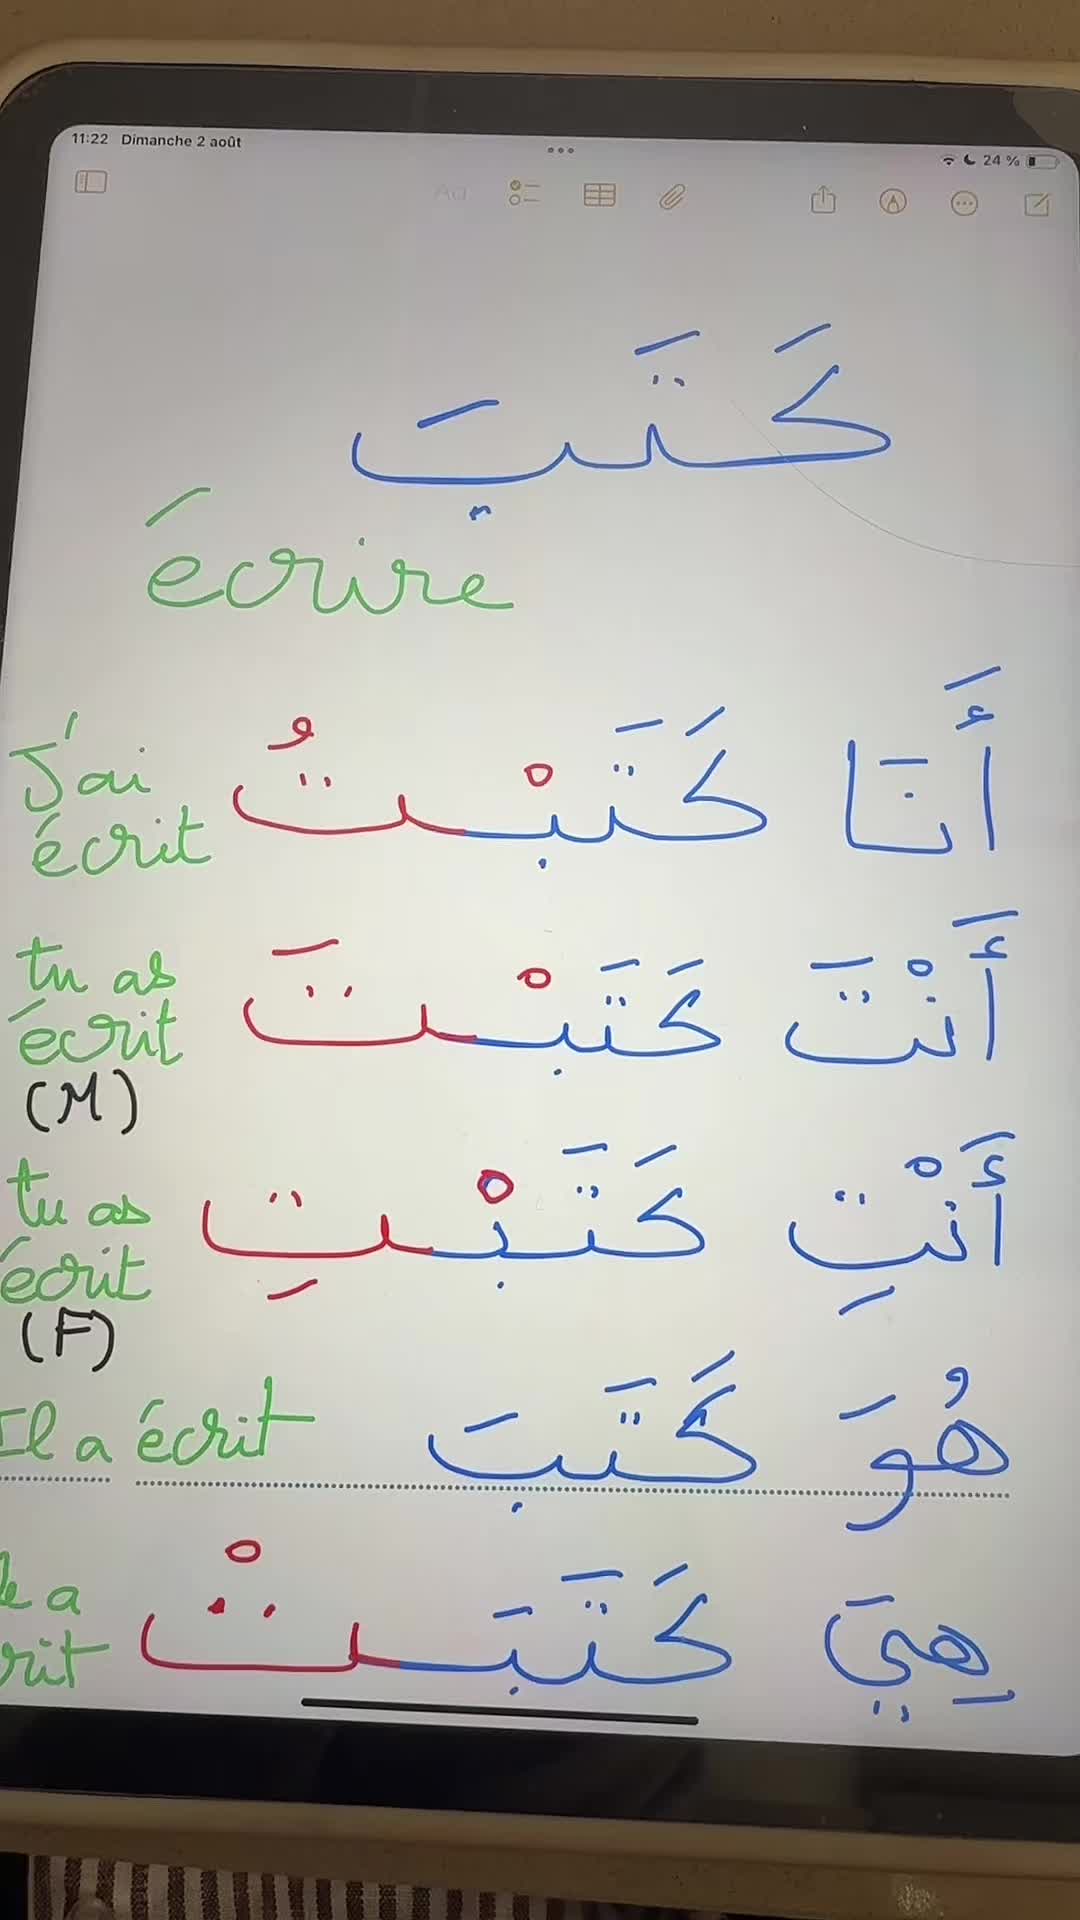 11:22 Dimanche 2 août
24 %
كَتَبَ
écrire
أَنَا كَتَبْتُ
J'ai
écrit
أَنْتَ كَتَبْتَ
tu as
écrit
(M)
أَنْتِ كَتَبْتِ
tu as
écrit
(F)
هُوَ كَتَبَ
Il a écrit
هِيَ كَتَبَتْ
a